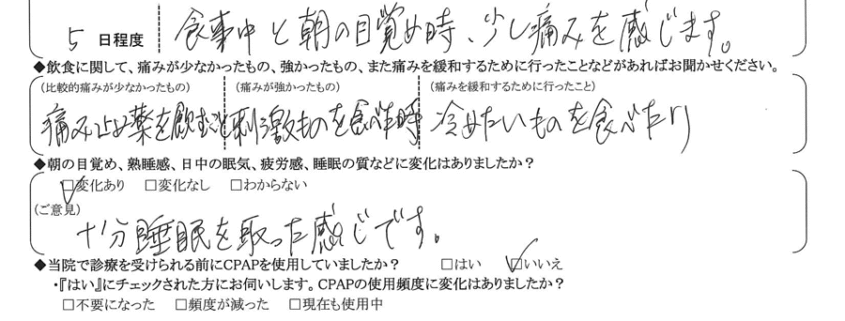 5 日程度 食事中と朝の目覚め時、少し痛みを感じます。
◆飲食に関して、痛みが少なかったもの、強かったもの、また痛みを緩和するために行ったことなどがあればお聞かせください。
(比較的痛みが少なかったもの) (痛みが強かったもの) (痛みを緩和するために行ったこと)
痛み止め薬を飲むと 刺激ものを食べた時 冷めたいものを食べたり
◆朝の目覚め、熟睡感、日中の眠気、疲労感、睡眠の質などに変化はありましたか?
☑変化あり □変化なし □わからない
(ご意見)
十分睡眠を取った感じです。
◆当院で診療を受けられる前にCPAPを使用していましたか? □はい ☑いいえ
・『はい』にチェックされた方にお伺いします。CPAPの使用頻度に変化はありましたか?
□不要になった □頻度が減った □現在も使用中